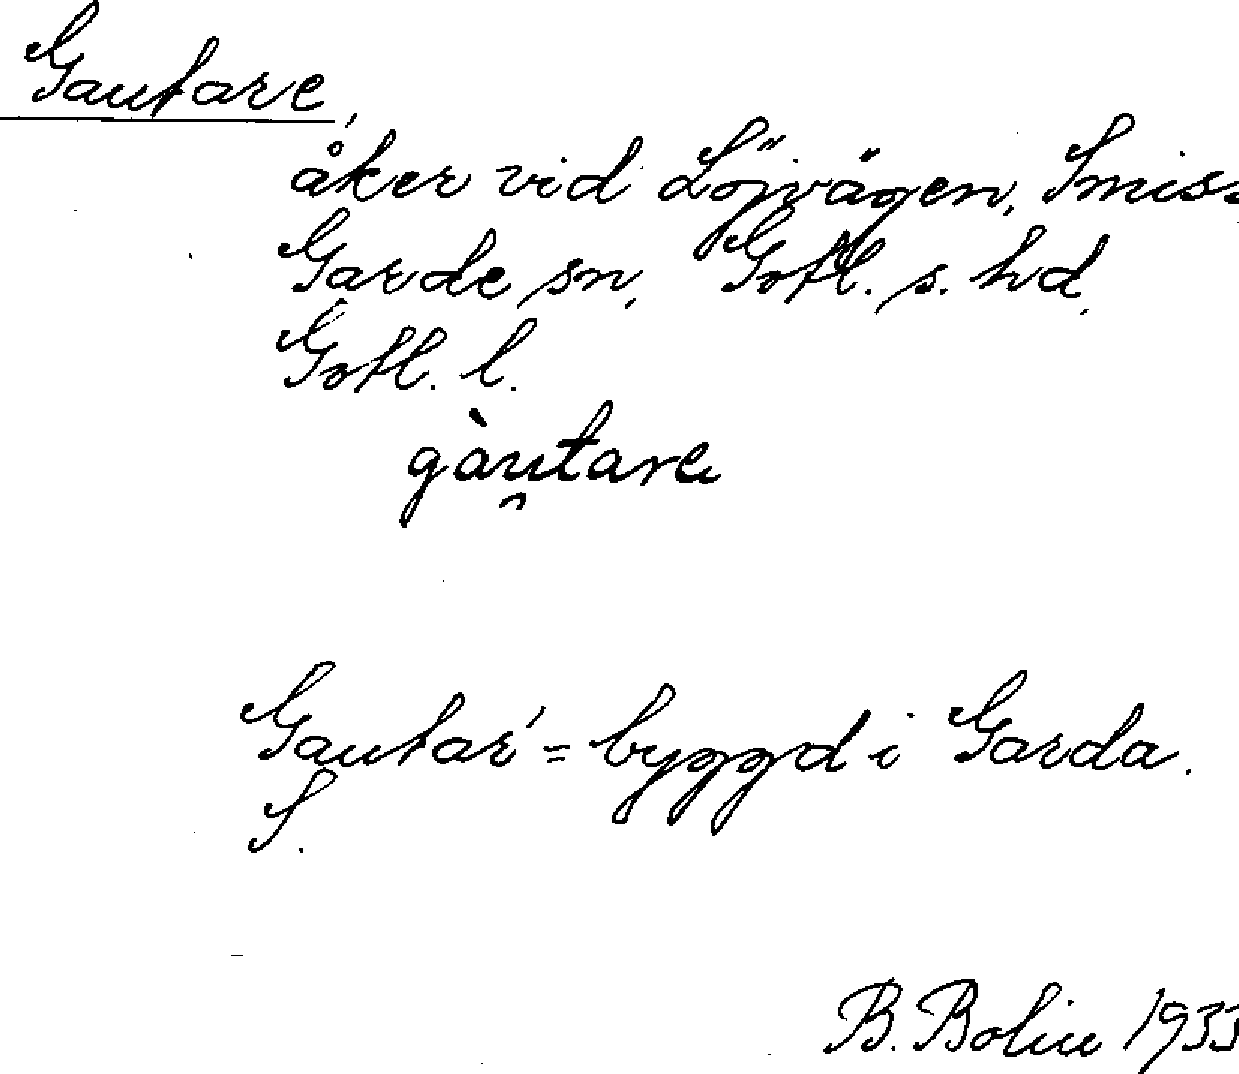 Gautare,
åker vid Löjvägen, Smiss
Garde sn, Gotl. s. hd,
Gotl. l.
gàu̯tare
Gautar' = byggd i Garda.
S.
B. Bolin 1933